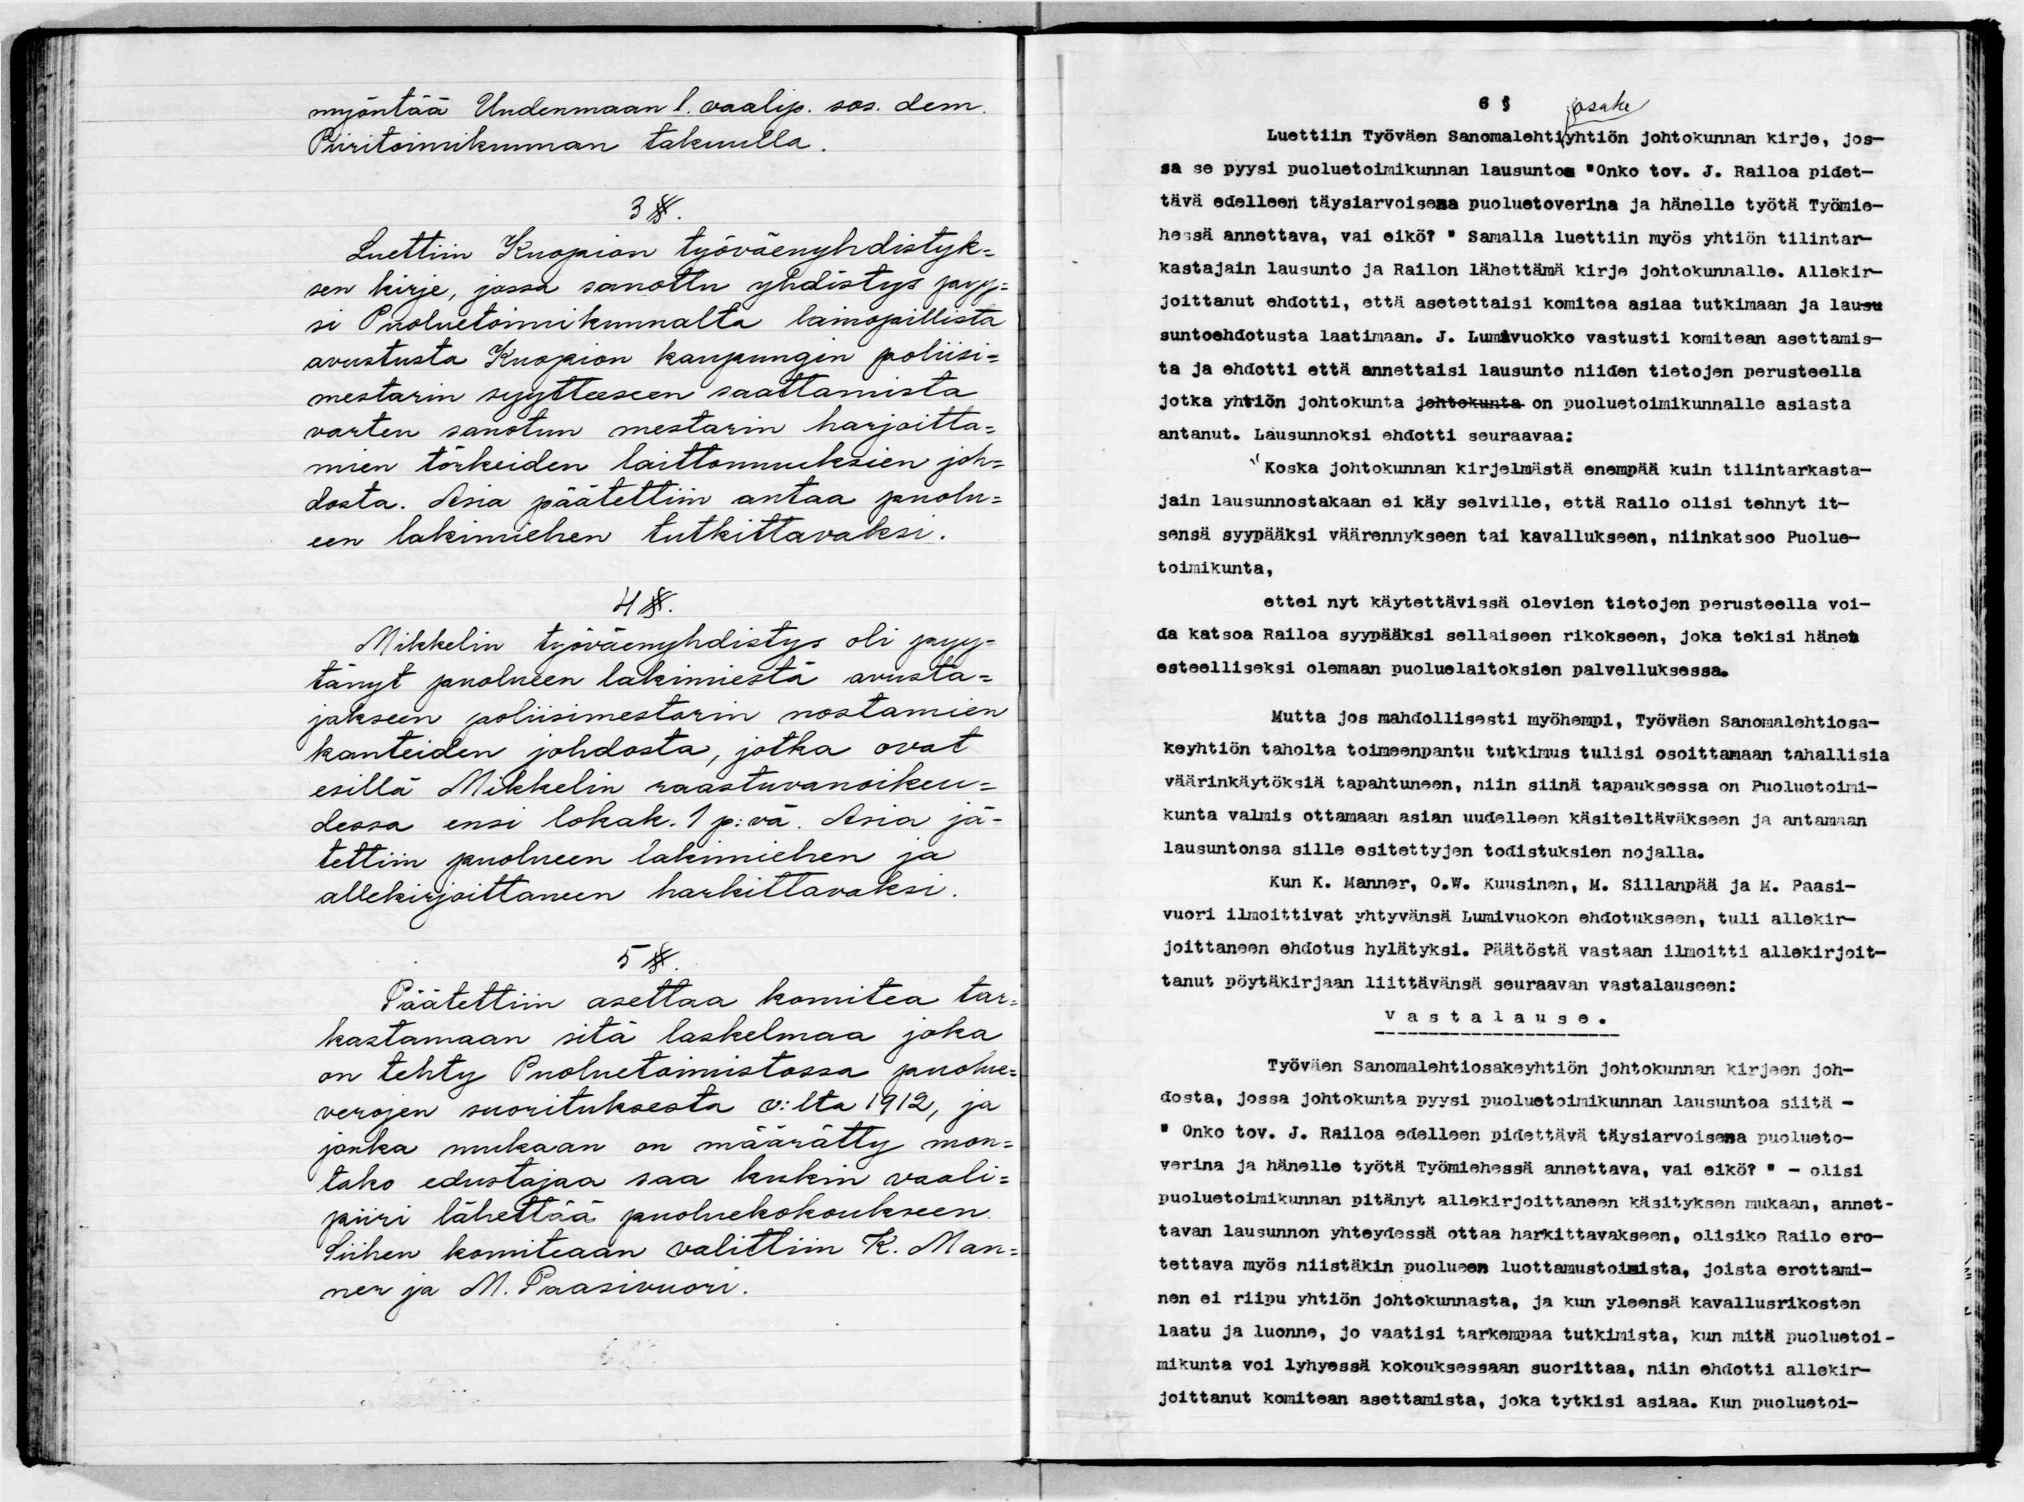 myöntää Uudenmaan l. vaalip. sos. dem.
Piiritoimikunnan takuulla.
3 §.
Luettiin Kuopion työväenyhdistyk=
sen kirje, jossa sanottu yhdistys pyy=
si Puoluetoimikunnalta lainopillista
avustusta Kuopion kaupungin poliisi=
mestarin syytteeseen saattamista
varten sanotun mestarin harjoitta=
mien törkeiden laittomuuksien joh=
dosta. Asia päätettiin antaa puolu=
een lakimiehen tutkittavaksi.
4 §.
Mikkelin työväenyhdistys oli pyy=
tänyt puolueen lakimiestä avusta=
jakseen poliisimestarin nostamien
kanteiden johdosta, jotka ovat
esillä Mikkelin raastuvanoikeu=
dessa ensi lokak. 1 p:vä. Asia jä-
tettiin puolueen lakimiehen ja
allekirjoittaneen harkittavaksi.
5 §.
Päätettiin asettaa komitea tar=
kastamaan sitä laskelmaa joka
on tehty Puoluetoimistossa puolue=
verojen suorituksesta v:lta 1912, ja
jonka mukaan on määrätty mon=
tako edustajaa saa kukin vaali=
piiri lähettää puoluekokoukseen.
Siihen komiteaan valittiin K. Man=
ner ja M. Paasivuori.
6 §
osake
Luettiin Työväen Sanomalehtiyhtiön johtokunnan kirje, jos-
sa se pyysi puoluetoimikunnan lausuntoa "Onko tov. J. Railoa pidet-
tävä edelleen täysiarvoisena puoluetoverina ja hänelle työtä Työmie-
hessä annettava, vai eikö? " Samalla luettiin myös yhtiön tilintar-
kastajain lausunto ja Railon lähettämä kirje johtokunnalle. Allekir-
joittanut ehdotti, että asetettaisi komitea asiaa tutkimaan ja lausu
suntoehdotusta laatimaan. J. Lumivuokko vastusti komitean asettamis-
ta ja ehdotti että annettaisi lausunto niiden tietojen perusteella
jotka yhtiön johtokunta johtokunta on puoluetoimikunnalle asiasta
antanut. Lausunnoksi ehdotti seuraavaa:
"Koska johtokunnan kirjelmästä enempää kuin tilintarkasta-
jain lausunnostakaan ei käy selville, että Railo olisi tehnyt it-
sensä syypääksi väärennykseen tai kavallukseen, niinkatsoo Puolue-
toimikunta,
ettei nyt käytettävissä olevien tietojen perusteella voi-
da katsoa Railoa syypääksi sellaiseen rikokseen, joka tekisi hänet
esteelliseksi olemaan puoluelaitoksien palvelluksessa.
Mutta jos mahdollisesti myöhempi, Työväen Sanomalehtiosa-
keyhtiön taholta toimeenpantu tutkimus tulisi osoittamaan tahallisia
väärinkäytöksiä tapahtuneen, niin siinä tapauksessa on Puoluetoimi-
kunta valmis ottamaan asian uudelleen käsiteltäväkseen ja antamaan
lausuntonsa sille esitettyjen todistuksien nojalla.
Kun K. Manner, O.W. Kuusinen, M. Sillanpää ja M. Paasi-
vuori ilmoittivat yhtyvänsä Lumivuokon ehdotukseen, tuli allekir-
joittaneen ehdotus hylätyksi. Päätöstä vastaan ilmoitti allekirjoit-
tanut pöytäkirjaan liittävänsä seuraavan vastalauseen:
V a s t a l a u s e .
Työväen Sanomalehtiosakeyhtiön johtokunnan kirjeen joh-
dosta, jossa johtokunta pyysi puoluetoimikunnan lausuntoa siitä -
" Onko tov. J. Railoa edelleen pidettävä täysiarvoisena puolueto-
verina ja hänelle työtä Työmiehessä annettava, vai eikö? " - olisi
puoluetoimikunnan pitänyt allekirjoittaneen käsityksen mukaan, annet-
tavan lausunnon yhteydessä ottaa harkittavakseen, olisiko Railo ero-
tettava myös niistäkin puolueen luottamustoimista, joista erottami-
nen ei riipu yhtiön johtokunnasta, ja kun yleensä kavallusrikosten
laatu ja luonne, jo vaatisi tarkempaa tutkimista, kun mitä puoluetoi-
mikunta voi lyhyessä kokouksessaan suorittaa, niin ehdotti allekir-
joittanut komitean asettamista, joka tytkisi asiaa. Kun puoluetoi-